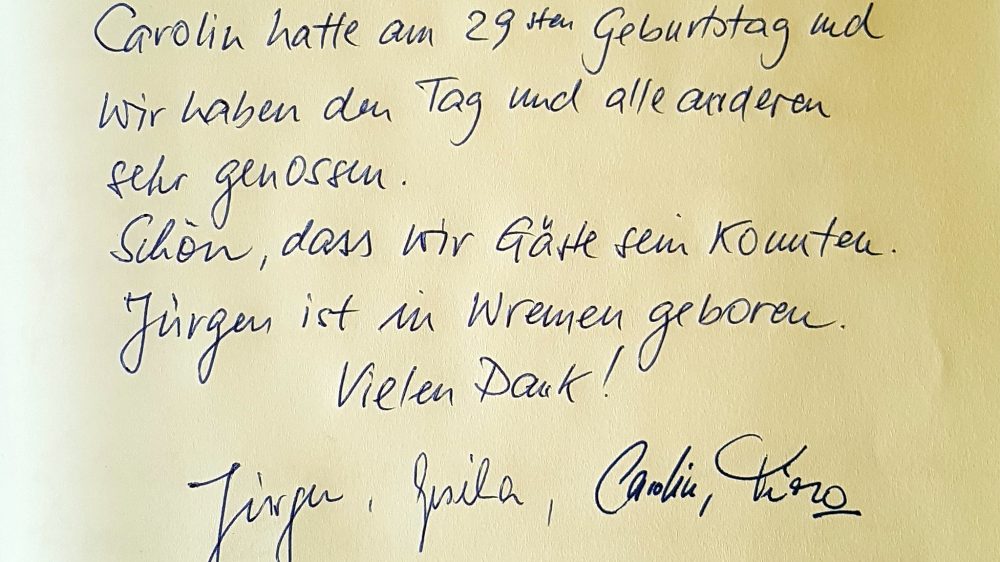 Carolin hatte am 29sten Geburtstag und
wir haben den Tag und alle anderen
sehr genossen.
Schön, dass wir Gäste sein konnten.
Jürgen ist in Wremen geboren.
Vielen Dank!
Jürgen, Gisela, Carolin,